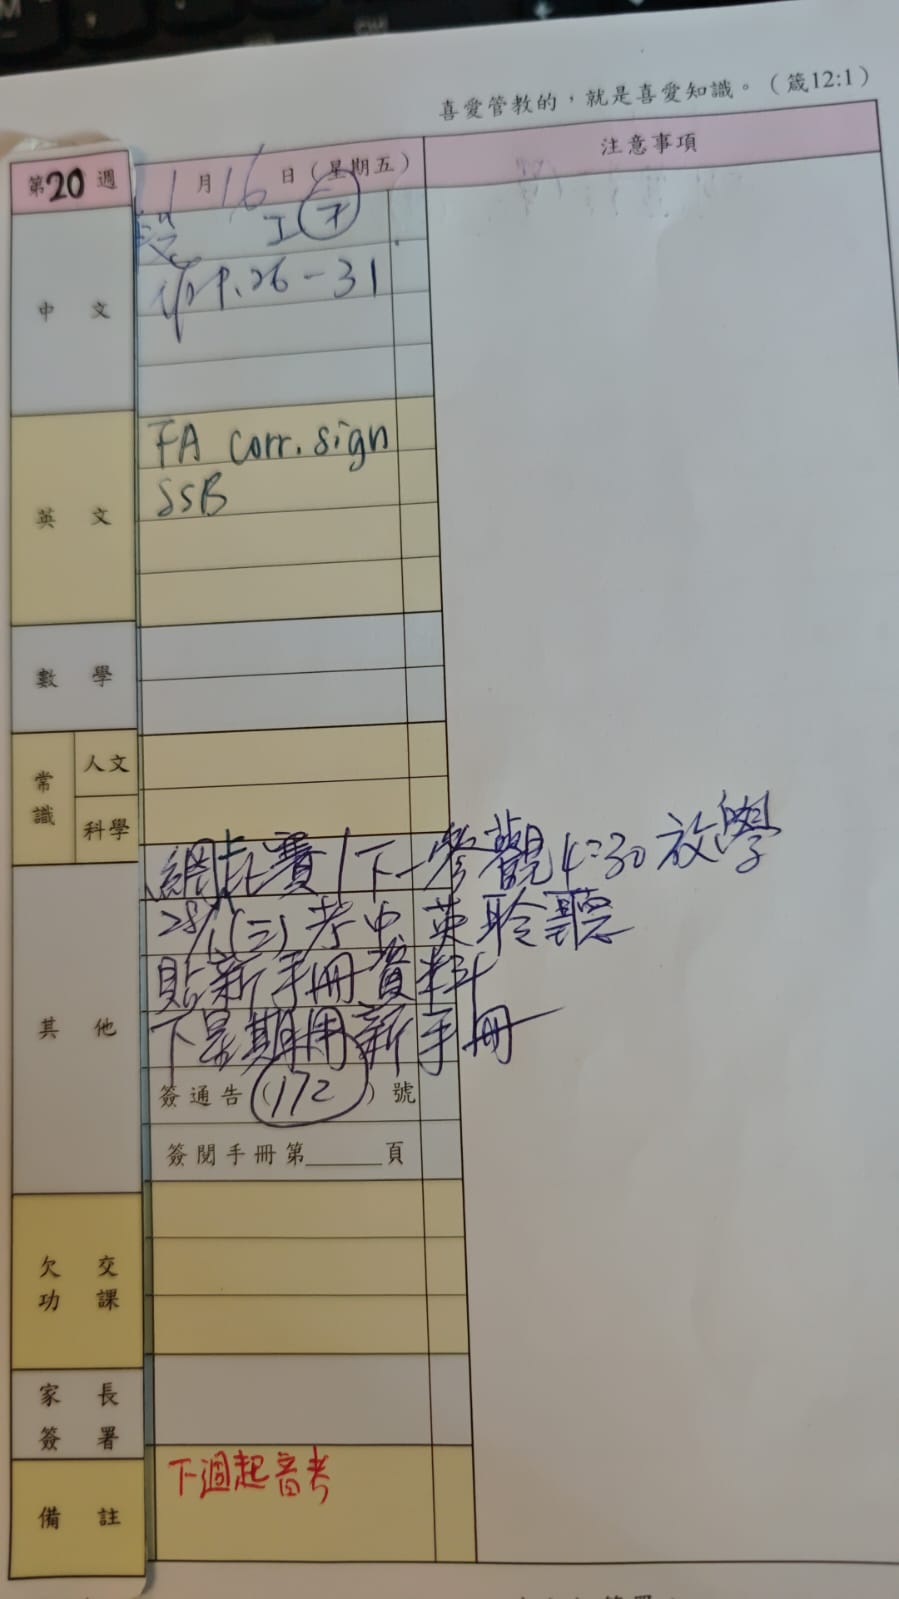 喜愛管教的，就是喜愛知識。（箴12:1）
第20週
月16日（星期五）
注意事項
中文
作P.26-31
英文
FA corr. sign
SSB
數學
常識
人文
科學
其他
下一參觀4:30放學
28/1(三)考中、英聆聽
貼新手冊資料
下星期用新手冊
簽通告（172）號
簽閱手冊第______頁
欠交功課
家長簽署
備註
下週起音考